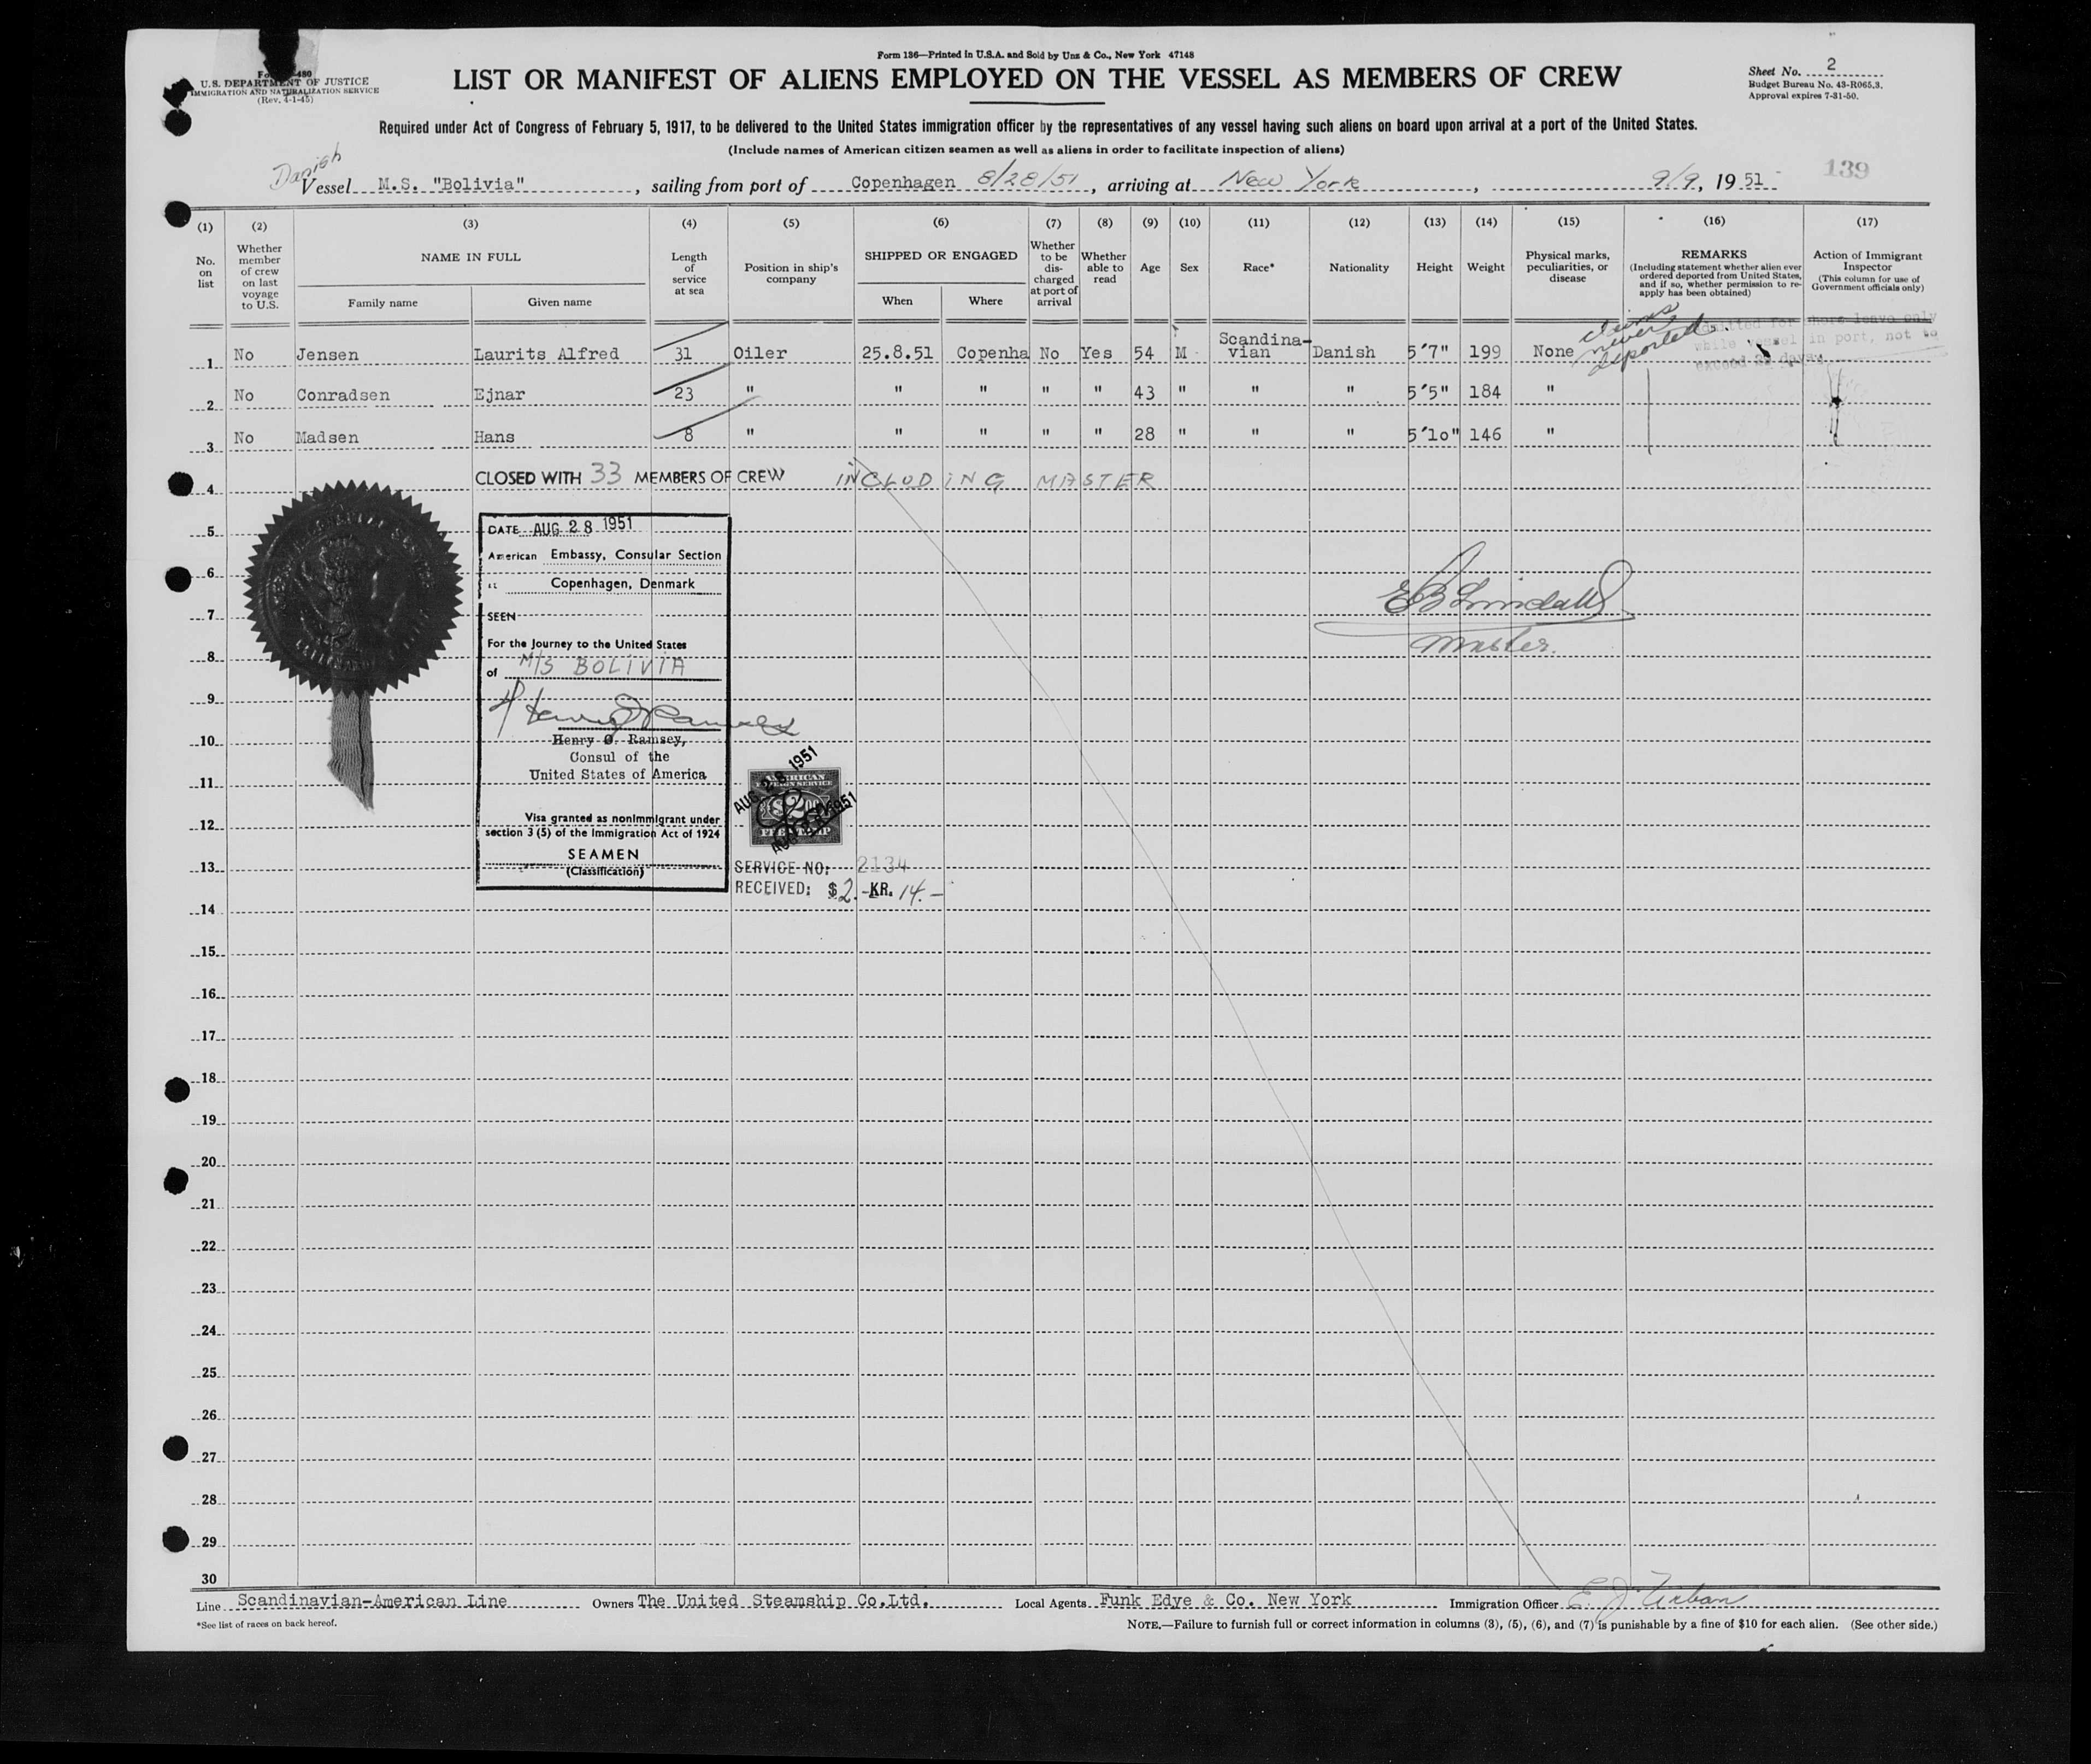 Form 136—Printed in U.S.A. and Sold by Unz & Co., New York 47148
U.S. DEPARTMENT OF JUSTICE
IMMIGRATION AND NATURALIZATION SERVICE
(Rev. 4-1-45)
LIST OR MANIFEST OF ALIENS EMPLOYED ON THE VESSEL AS MEMBERS OF CREW
Sheet No. 2
Budget Bureau No. 43-R065.3.
Approval expires 7-31-50.
Required under Act of Congress of February 5, 1917, to be delivered to the United States immigration officer by the representatives of any vessel having such aliens on board upon arrival at a port of the United States.
(Include names of American citizen seamen as well as aliens in order to facilitate inspection of aliens)
139
Danish
Vessel M.S. "Bolivia", sailing from port of Copenhagen 8/28/51, arriving at New York, 9/9, 19 51
(1) (2) (3) (4) (5) (6) (7) (8) (9) (10) (11) (12) (13) (14) (15) (16) (17)
No. on list
Whether member of crew on last voyage to U.S.
NAME IN FULL
Family name
Given name
Length of service at sea
Position in ship's company
SHIPPED OR ENGAGED
When
Where
Whether to be discharged at port of arrival
Whether able to read
Age
Sex
Race*
Nationality
Height
Weight
Physical marks, peculiarities, or disease
REMARKS
(Including statement whether alien ever ordered deported from United States, and if so, whether permission to reapply has been obtained)
Action of Immigrant Inspector
(This column for use of Government officials only)
1 No Jensen Laurits Alfred 31 Oiler 25.8.51 Copenha No Yes 54 M Scandina-vian Danish 5'7" 199 None
claims never deported
Admitted for shore leave only
while vessel in port, not to
exceed 29 days.
2 No Conradsen Ejnar 23 " " " " " 43 " " " 5'5" 184 "
3 No Madsen Hans 8 " " " " " 28 " " " 5'10" 146 "
CLOSED WITH 33 MEMBERS OF CREW INCLUDING MASTER
4
5
6
7
8
9
10
11
12
13
14
15
16
17
18
19
20
21
22
23
24
25
26
27
28
29
30
DATE AUG 28 1951
American Embassy, Consular Section
at Copenhagen, Denmark
SEEN
For the Journey to the United States
of M/S BOLIVIA
Henry O. Ramsey,
Consul of the
United States of America
Visa granted as nonimmigrant under
section 3 (5) of the Immigration Act of 1924
SEAMEN
(Classification)
AUG 28 1951
AMERICAN
FOREIGN SERVICE
FEE STAMP
SERVICE NO: 2134
RECEIVED: $2.- KR. 14.-
Master.
Line Scandinavian-American Line Owners The United Steamship Co.Ltd. Local Agents Funk Edye & Co. New York Immigration Officer E. J. Urban
*See list of races on back hereof.
NOTE.—Failure to furnish full or correct information in columns (3), (5), (6), and (7) is punishable by a fine of $10 for each alien. (See other side.)